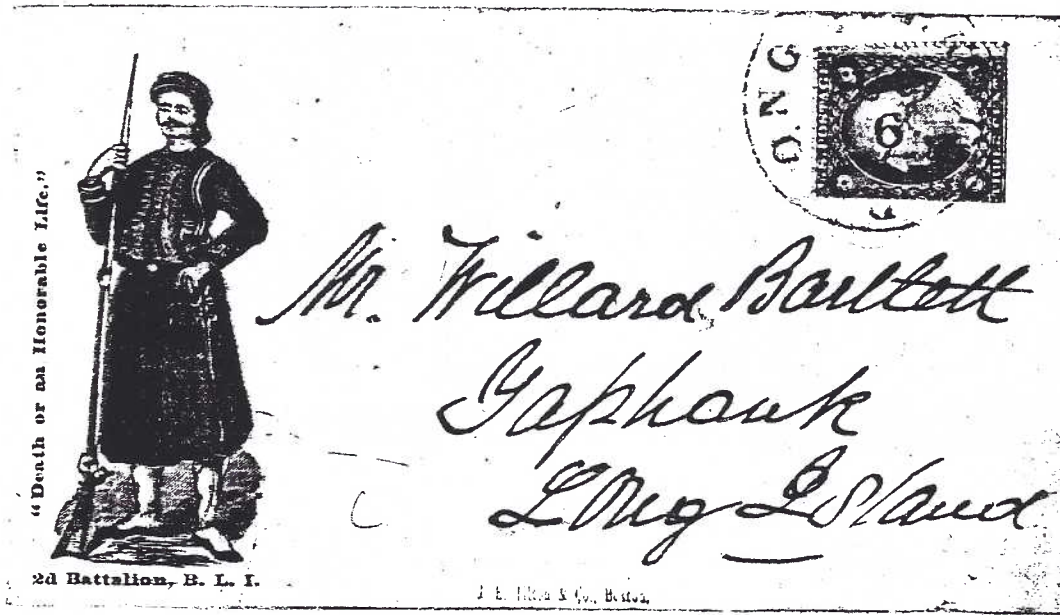 "Death or an Honorable Life."
2d Battalion, B. L. I.
ONG
6
Mr. Willard Bartlett
Yaphank
Long Island
& Co., Boston.